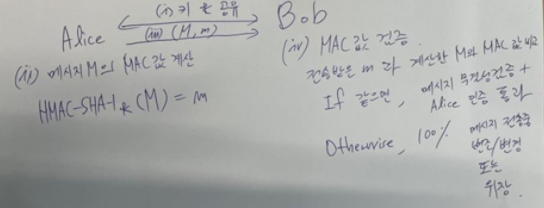 (i) 키 k 공유
Alice (iii) (M, m) Bob
(ii) 메시지 M의 MAC값 계산
HMAC-SHA-1k(M) = m
(iv) MAC값 검증
전송받은 m과 계산한 M의 MAC값 비교
If 같으면, 메시지 무결성검증 +
Alice 인증 통과
Otherwise, 100% 메시지 전송중
변조/변경
또는
위장.